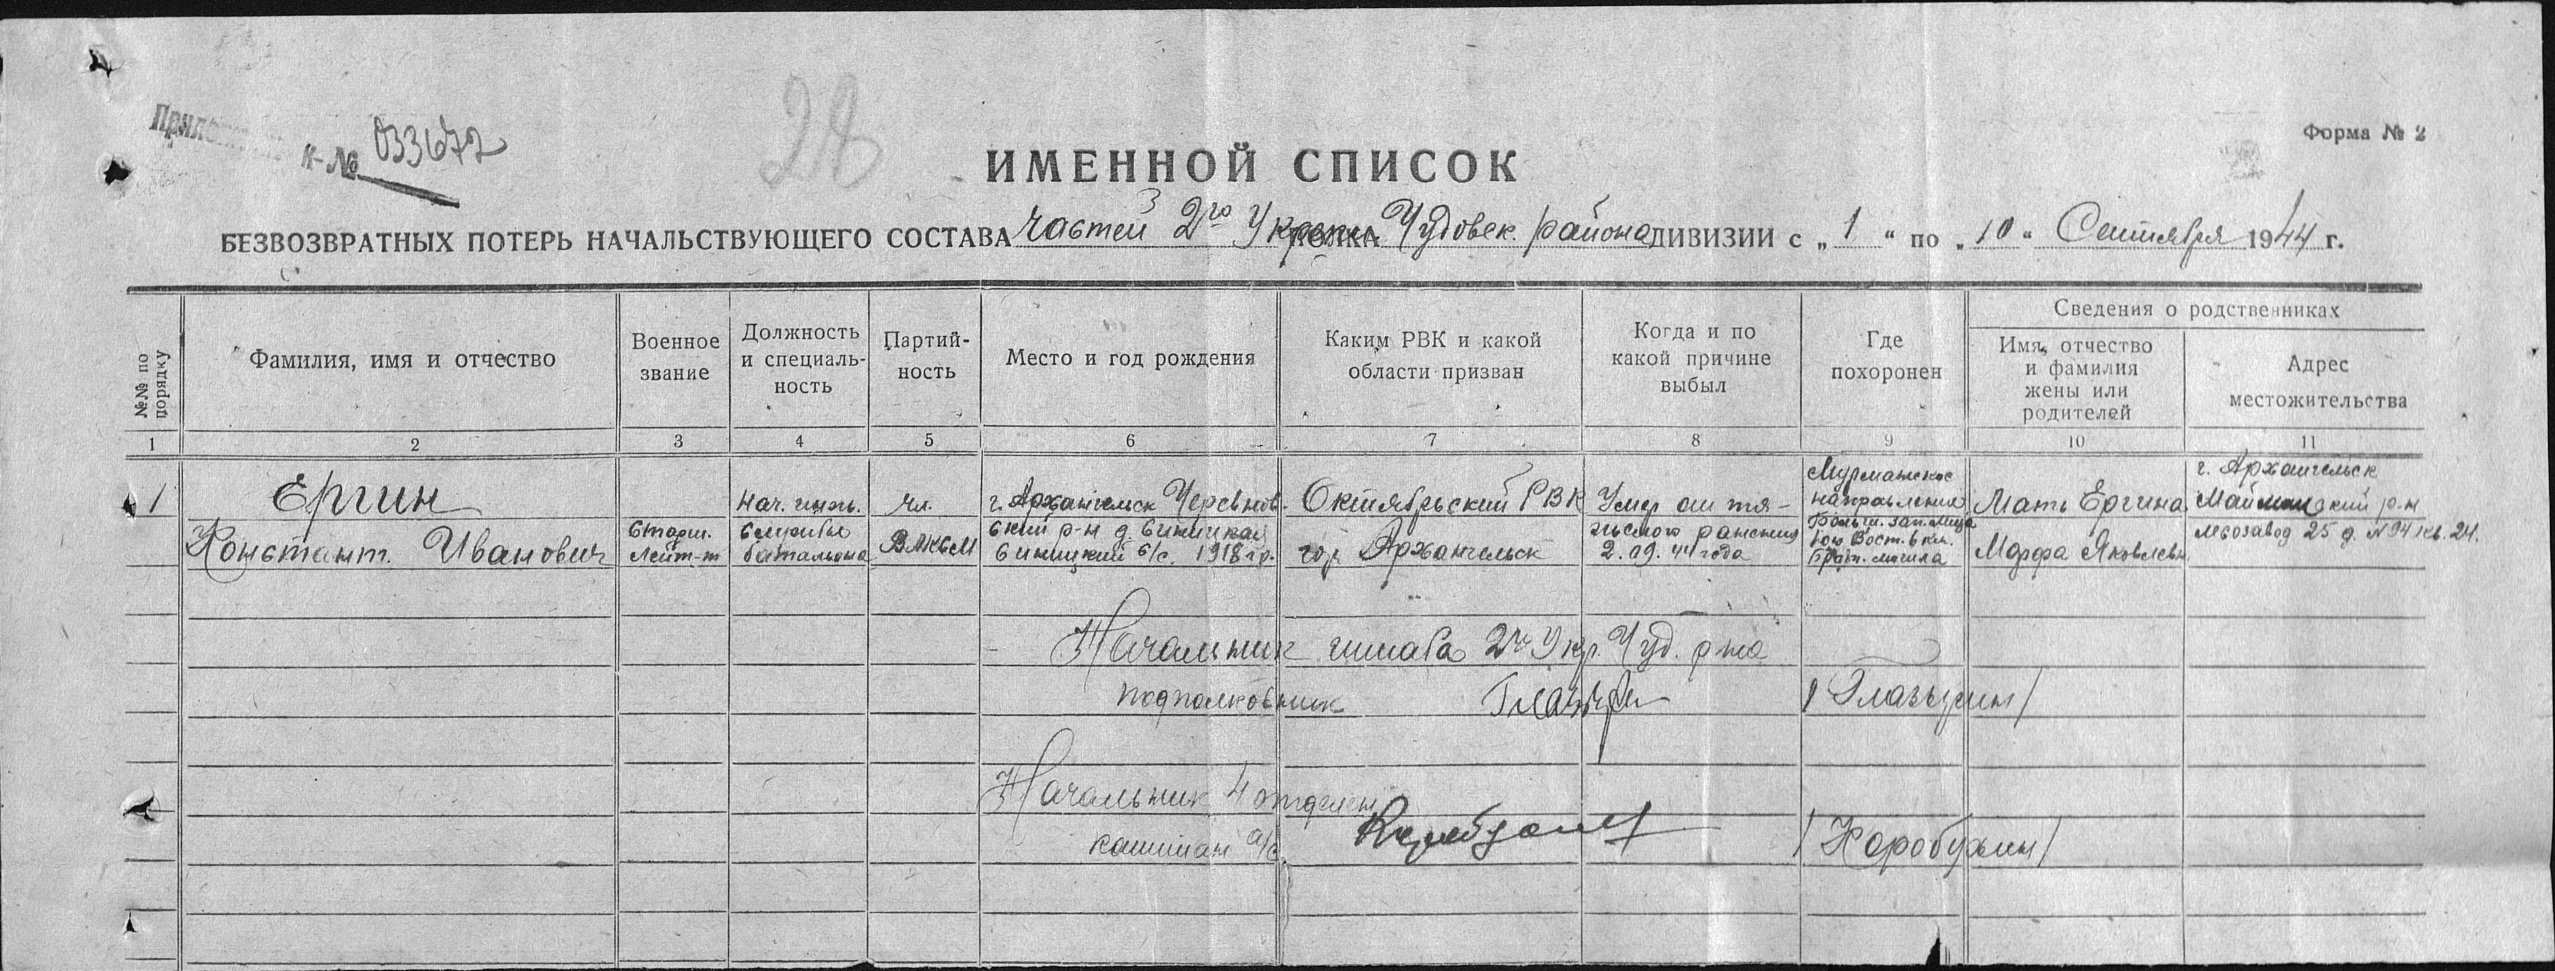 Форма № 2
К-№ 033672
28
ИМЕННОЙ СПИСОК
БЕЗВОЗВРАТНЫХ ПОТЕРЬ НАЧАЛЬСТВУЮЩЕГО СОСТАВА частей 2го Укреп. ПОЛКА Чудовск. района ДИВИЗИИ с „1“ по „10“ Сентября 1944 г.
№№ по порядку
Фамилия, имя и отчество
Военное звание
Должность и специальность
Партийность
Место и год рождения
Каким РВК и какой области призван
Когда и по какой причине выбыл
Где похоронен
Сведения о родственниках
Имя, отчество и фамилия жены или родителей
Адрес местожительства
1 2 3 4 5 6 7 8 9 10 11
1
Ергин
Констант. Иванович
Старш.
лейт-т
нач. инж.
службы
батальона
чл.
ВЛКСМ
г. Архангельск Черевков-
ский р-н д.
с/с. 1918 г.р.
Октябрьский РВК
гор. Архангельск
Умер от тя-
желого ранения
2.09.44 года
Мурманское
направление
Больш. Зап. Лица
Юго Вост. 6 км.
Брат. могила
Мать Ергина
Марфа Яковлевн.
г. Архангельск
Маймакский р-н
лесозавод 25 д. №94 кв. 24.
Начальник штаба 2го Укр. Чуд. р-на
подполковник /Глазырин/
Начальник 4 отделен.
капитан а/с /Коробухин/